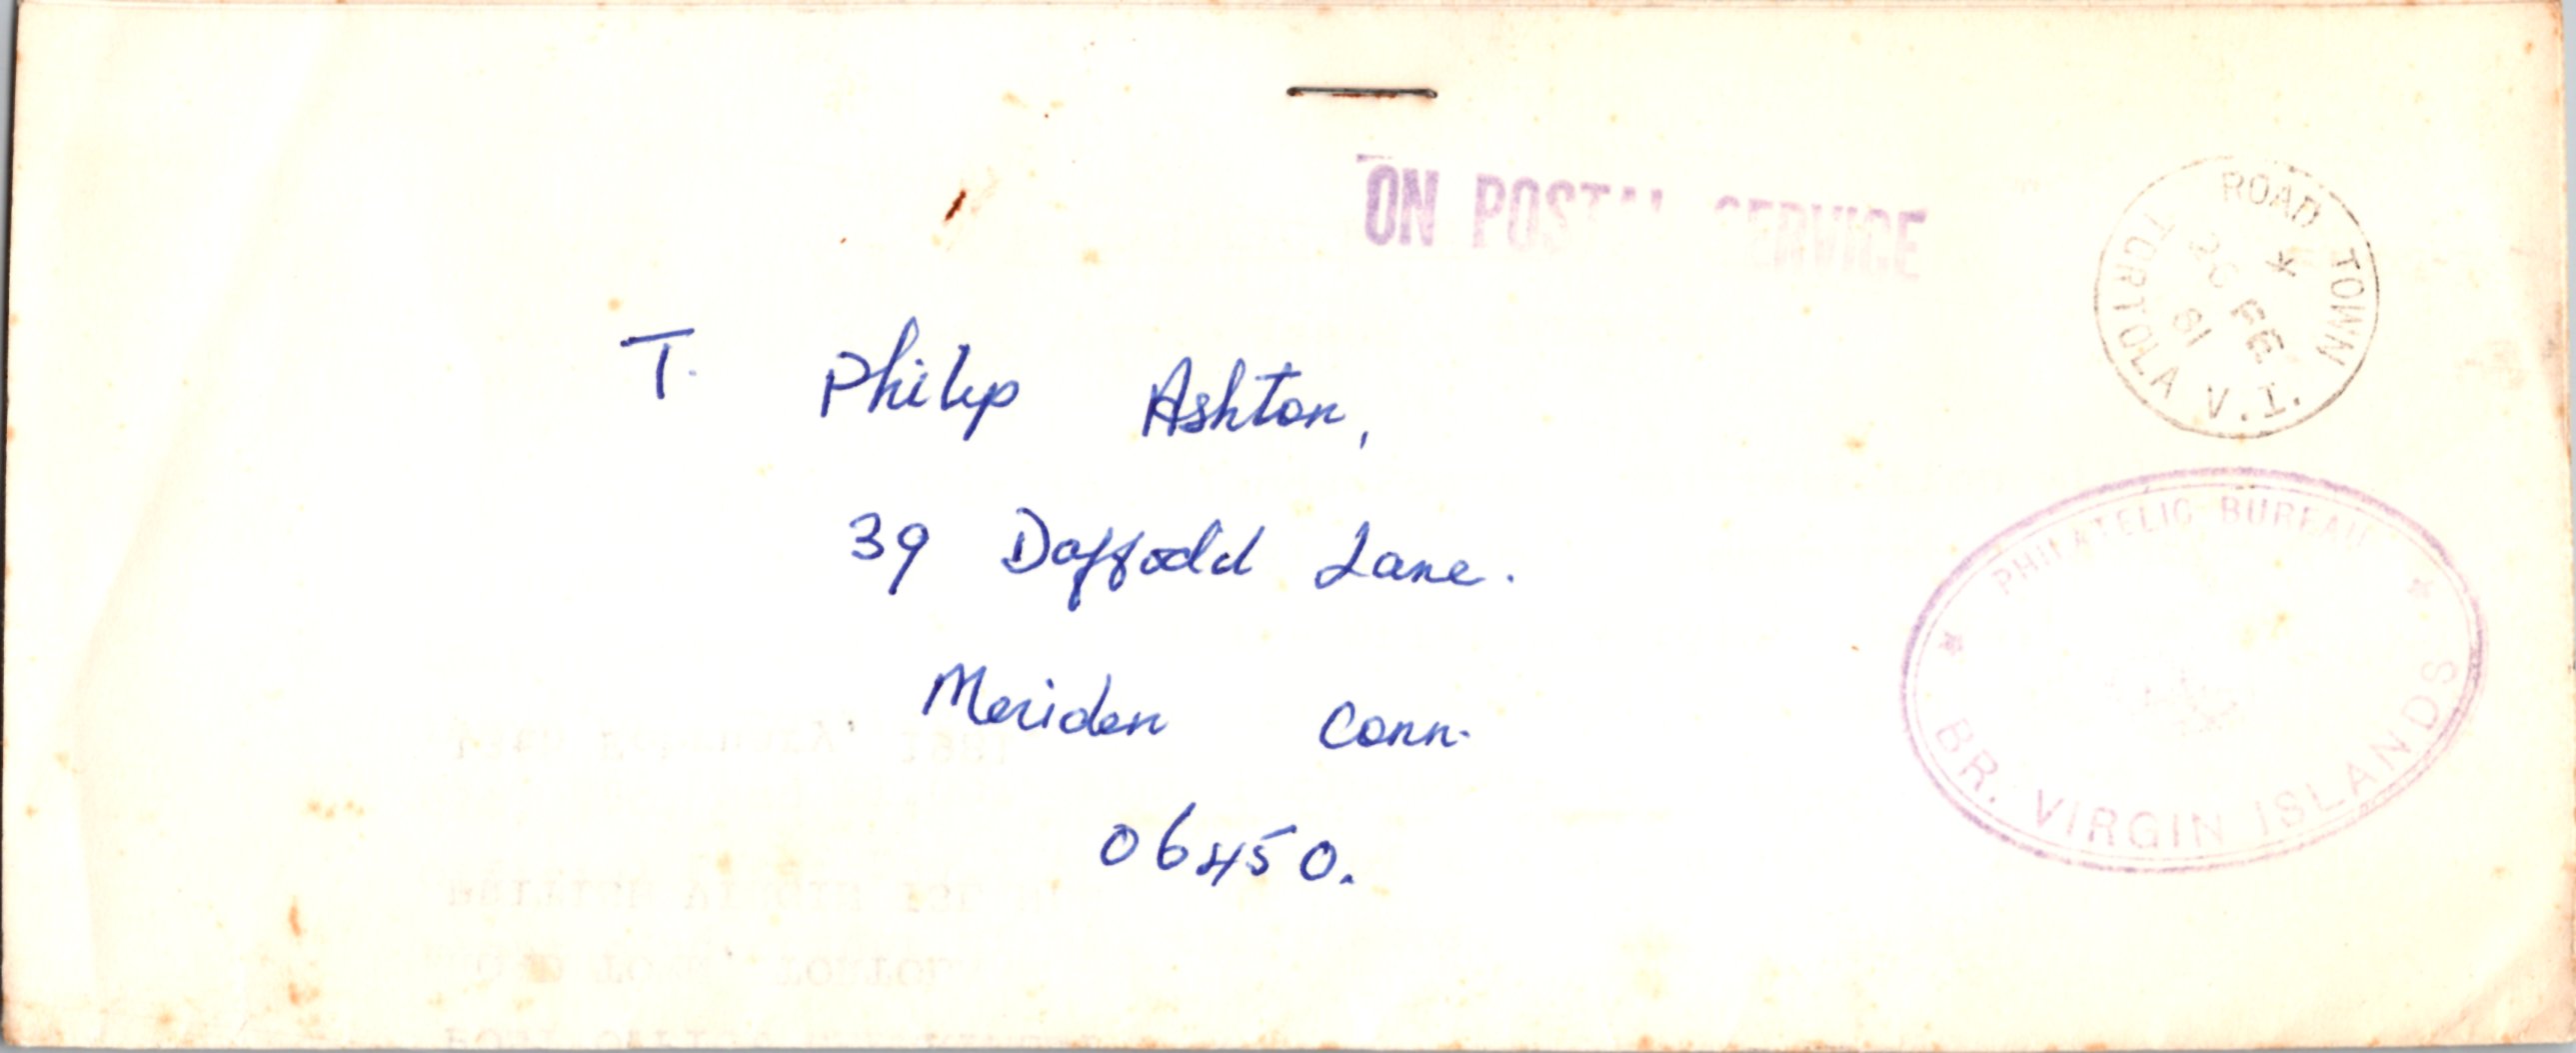 ON POSTAL SERVICE
ROAD TOWN
TORTOLA V.I.
FE
81
T. Philip Ashton,
39 Daffodil Lane.
Meriden Conn.
06450.
PHILATELIC BUREAU
BR. VIRGIN ISLANDS